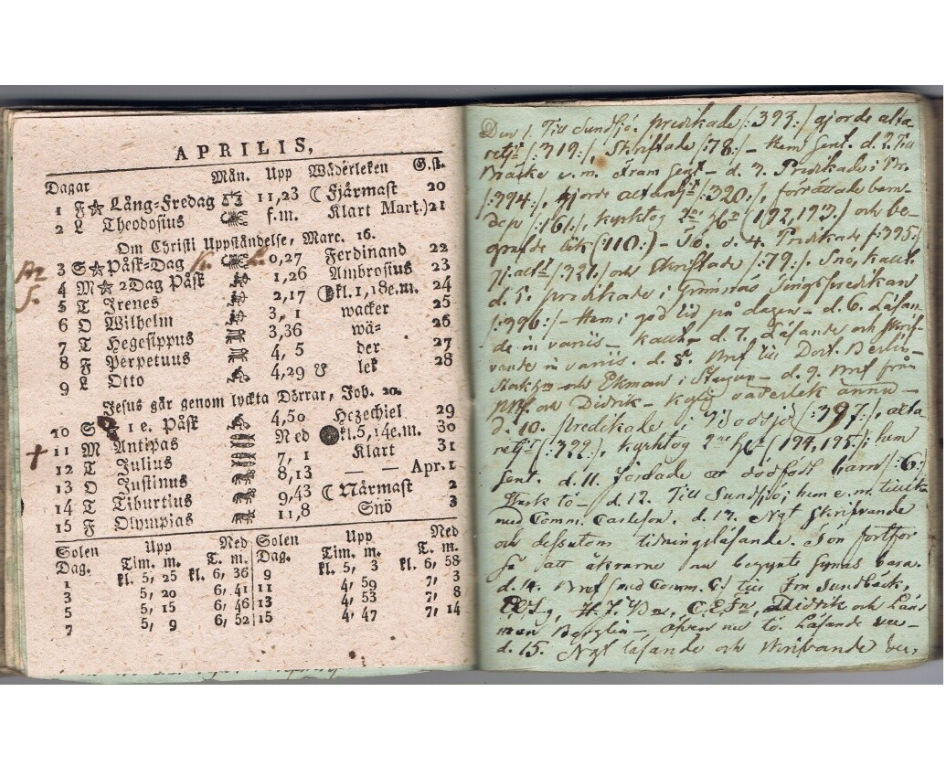 APRILIS,
Dagar Mån. Upp Wäderleken G.st.
1 F☆ Lång-Fredag 11,23 ☾ Fjärmast 20
2 L Theodosius f.m. Klart Mart.) 21
Om Christi Uppståndelse, Marc. 16.
3 S☆ Påsk-Dag 0,27 Ferdinand 22
4 M☆ 2 Dag Påsk 1,26 Ambrosius 23
5 T Irenes 2,17 kl. 1, 18 e.m. 24
6 O Wilhelm 3, 1 wacker 25
7 T Hegesippus 3,36 wä- 26
8 F Perpetuus 4, 5 der 27
9 L Otto 4,29 lek 28
Jesus går genom lyckta Dörrar, Joh. 20.
10 S 1 e. Påsk 4,50 Hezechiel 29
11 M Antipas Ned kl. 5, 14 e.m. 30
12 T Julius 7, 1 Klart 31
13 O Justinus 8,13 — — Apr. 1
14 T Tiburtius 9,43 ☾ Närmast 2
15 F Olympias 11,8 Snö 3
Solen Upp Ned Solen Upp Ned
Dag. Tim. m. T. m. Dag. Tim. m. T. m.
1 kl. 5, 25 kl. 6, 36 9 kl. 5, 3 kl. 6, 58
3 5, 20 6, 41 11 4, 59 7, 3
5 5, 15 6, 46 13 4, 53 7, 8
7 5, 9 6, 52 15 4, 47 7, 14
Den 1. Till Sundsjö. predikade /:393:/ gjorde alta
/:319:/ Skriftade /:78:/ – Hem sent. d. 2. Till
Bräcke e.m. d. 3. Predikade i
/:394:/, gjorde /:320:/, förrättade barn
/:16:/, kyrktog (192, 193) och be-
grafde lik (110:) – d. 4. Predikade /:395:/
/:321:/ och skriftade /:79:/. Snö,
d. 5. predikade i
/:396:/ – Hem i god tid på dagen – d. 6. Läsan-
de in variis – d. 7. Läsande och skrif-
vande in variis. d. 8. till Dort. Berlin
och Ekman i d. 9. från
och Didrik – vaderlek ännu –
d. 10. predikade i Bodsjö /:397:/, alta
/:322:/, kyrktog (194, 195:) hem
sent. d. 11. Jordade ett dödfödt barn /:6:/
tö – d. 12. Till Sundsjö; hem e.m.
med Comm. Carleson. d. 13. Ngt skrifvande
och dessutom tidningsläsande. Ton fortfor
så att åkrarne nu begynte synas bara.
d. 14. med Comm. C. till Fru Sundbäck,
C.E. Didrik och Läns
man Berglin – äfven nu tö. Läsande
d. 15. Ngt läsande och skrifvande